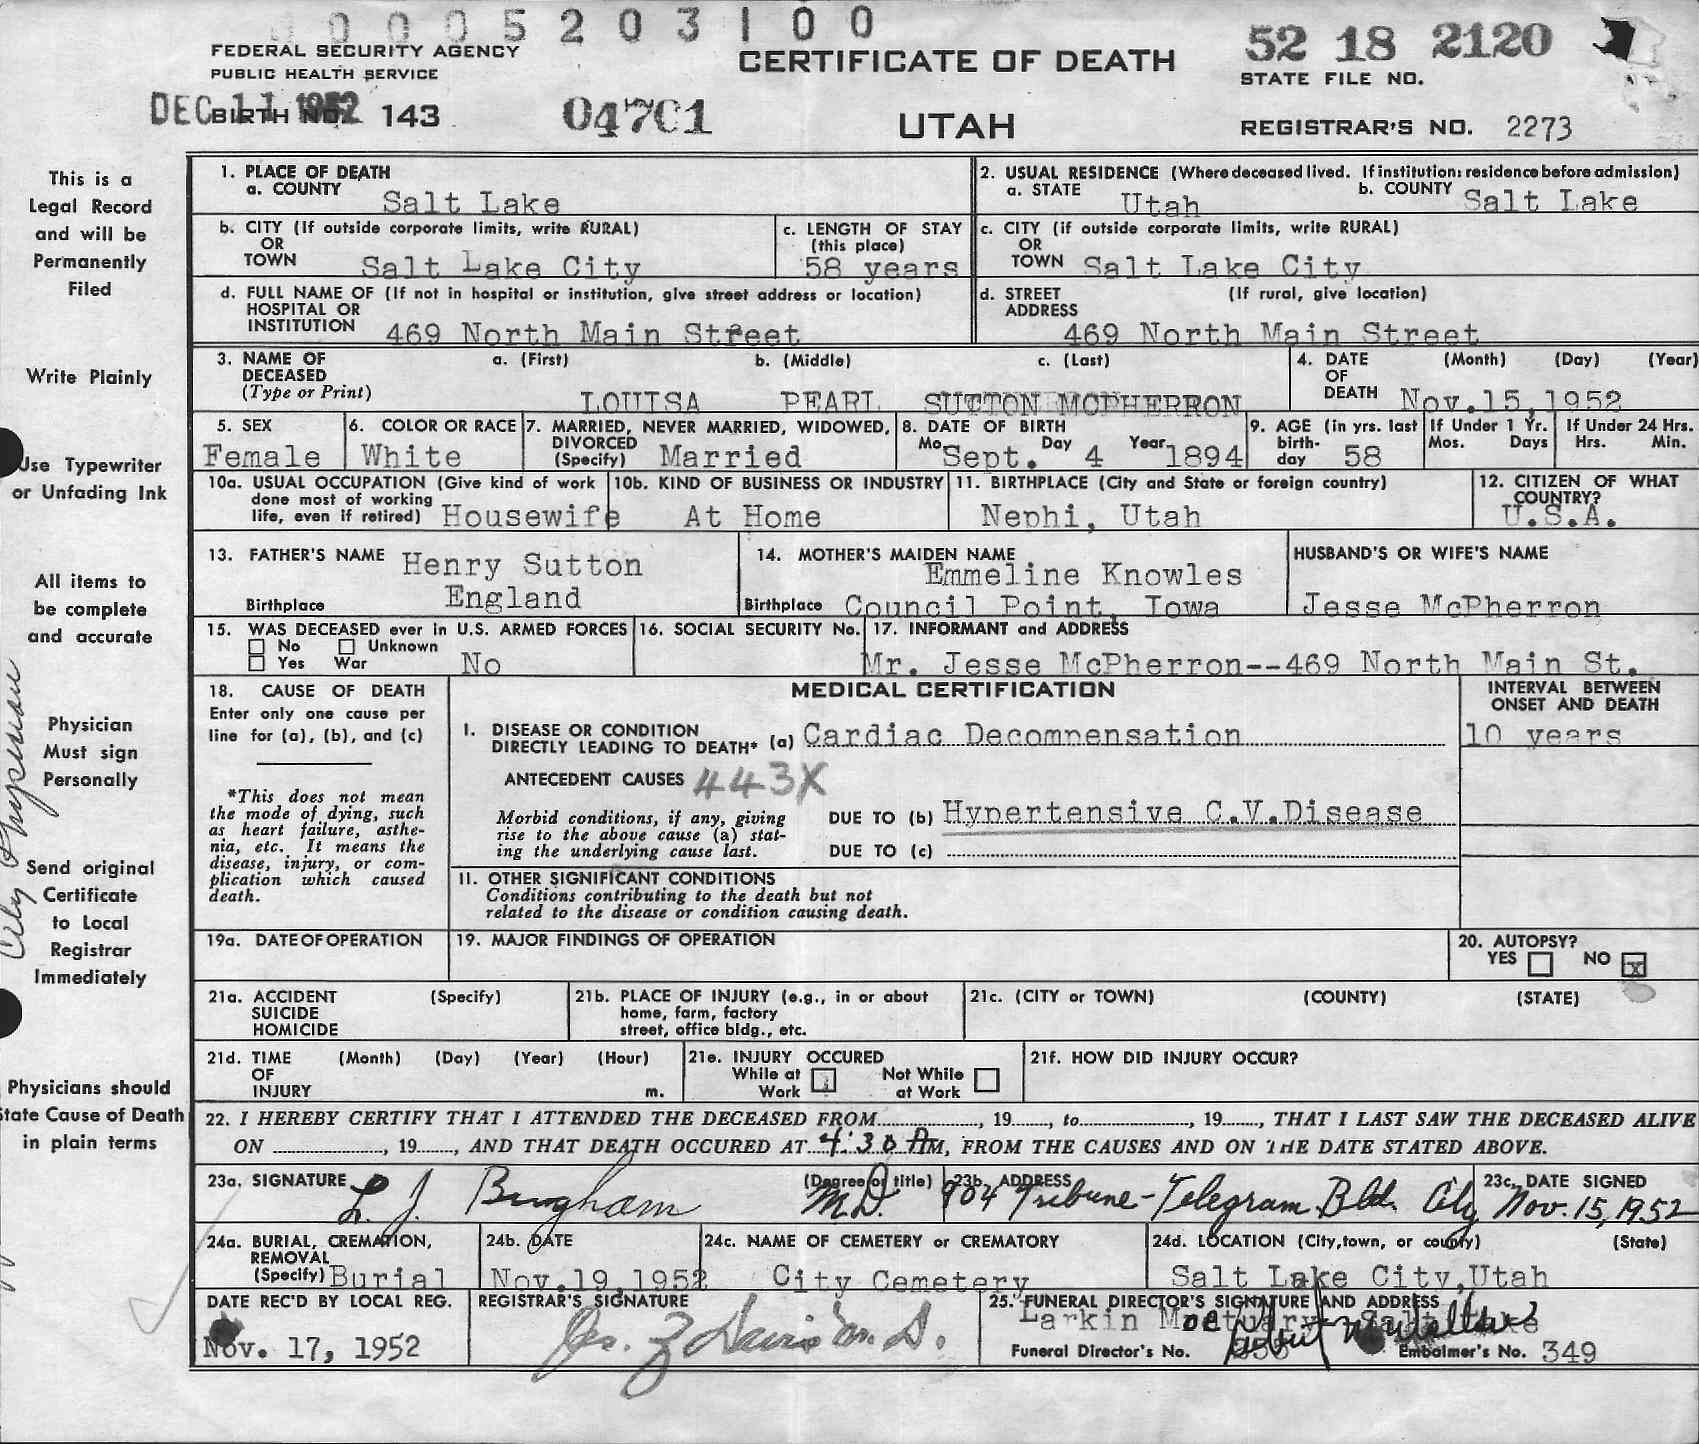 0 0 0 5 2 0 3 1 0 0
FEDERAL SECURITY AGENCY
PUBLIC HEALTH SERVICE
CERTIFICATE OF DEATH
52 18 2120
STATE FILE NO.
DEC 11 1952
BIRTH NO. 143
04701
UTAH
REGISTRAR'S NO. 2273
This is a
Legal Record
and will be
Permanently
Filed
Write Plainly
Use Typewriter
or Unfading Ink
All items to
be complete
and accurate
Physician
Must sign
Personally
Send original
Certificate
to Local
Registrar
Immediately
Physicians should
State Cause of Death
in plain terms
City Physician
1. PLACE OF DEATH
a. COUNTY Salt Lake
2. USUAL RESIDENCE (Where deceased lived. If institution: residence before admission)
a. STATE Utah b. COUNTY Salt Lake
b. CITY (If outside corporate limits, write RURAL)
OR
TOWN Salt Lake City
c. LENGTH OF STAY
(this place)
58 years
c. CITY (if outside corporate limits, write RURAL)
OR
TOWN Salt Lake City
d. FULL NAME OF (If not in hospital or institution, give street address or location)
HOSPITAL OR
INSTITUTION 469 North Main Street
d. STREET (If rural, give location)
ADDRESS 469 North Main Street
3. NAME OF a. (First) b. (Middle) c. (Last)
DECEASED
(Type or Print) LOUISA PEARL SUTTON MCPHERRON
4. DATE (Month) (Day) (Year)
OF
DEATH Nov.15,1952
5. SEX
Female
6. COLOR OR RACE
White
7. MARRIED, NEVER MARRIED, WIDOWED,
DIVORCED
(Specify) Married
8. DATE OF BIRTH
Mo Sept. Day 4 Year 1894
9. AGE (in yrs. last
birth-
day 58
If Under 1 Yr.
Mos. Days
If Under 24 Hrs.
Hrs. Min.
10a. USUAL OCCUPATION (Give kind of work
done most of working
life, even if retired) Housewife
10b. KIND OF BUSINESS OR INDUSTRY
At Home
11. BIRTHPLACE (City and State or foreign country)
Nephi, Utah
12. CITIZEN OF WHAT
COUNTRY?
U.S.A.
13. FATHER'S NAME Henry Sutton
Birthplace England
14. MOTHER'S MAIDEN NAME
Emmeline Knowles
Birthplace Council Point, Iowa
HUSBAND'S OR WIFE'S NAME
Jesse McPherron
15. WAS DECEASED ever in U.S. ARMED FORCES
No Unknown
Yes War No
16. SOCIAL SECURITY No.
17. INFORMANT and ADDRESS
Mr. Jesse McPherron--469 North Main St.
18. CAUSE OF DEATH
Enter only one cause per
line for (a), (b), and (c)
*This does not mean
the mode of dying, such
as heart failure, asthe-
nia, etc. It means the
disease, injury, or com-
plication which caused
death.
MEDICAL CERTIFICATION
INTERVAL BETWEEN
ONSET AND DEATH
I. DISEASE OR CONDITION
DIRECTLY LEADING TO DEATH* (a) Cardiac Decompensation 10 years
ANTECEDENT CAUSES 443X
Morbid conditions, if any, giving
rise to the above cause (a) stat-
ing the underlying cause last.
DUE TO (b) Hypertensive C.V.Disease
DUE TO (c)
11. OTHER SIGNIFICANT CONDITIONS
Conditions contributing to the death but not
related to the disease or condition causing death.
19a. DATE OF OPERATION
19. MAJOR FINDINGS OF OPERATION
20. AUTOPSY?
YES NO x
21a. ACCIDENT (Specify)
SUICIDE
HOMICIDE
21b. PLACE OF INJURY (e.g., in or about
home, farm, factory
street, office bldg., etc.
21c. (CITY or TOWN) (COUNTY) (STATE)
21d. TIME (Month) (Day) (Year) (Hour)
OF
INJURY m.
21e. INJURY OCCURED
While at Not While
Work at Work
21f. HOW DID INJURY OCCUR?
22. I HEREBY CERTIFY THAT I ATTENDED THE DECEASED FROM............, 19......, to............, 19......, THAT I LAST SAW THE DECEASED ALIVE
ON ............, 19......, AND THAT DEATH OCCURED AT 4:30 A M, FROM THE CAUSES AND ON THE DATE STATED ABOVE.
23a. SIGNATURE (Degree or title)
L. J. Bingham M.D.
23b. ADDRESS
904 Tribune-Telegram Bld. City
23c. DATE SIGNED
Nov. 15, 1952
24a. BURIAL, CREMATION,
REMOVAL
(Specify) Burial
24b. DATE
Nov.19,1952
24c. NAME OF CEMETERY or CREMATORY
City Cemetery
24d. LOCATION (City,town, or county) (State)
Salt Lake City,Utah
DATE REC'D BY LOCAL REG.
Nov. 17, 1952
REGISTRAR'S SIGNATURE
Jos. Z Davis M. D.
25. FUNERAL DIRECTOR'S SIGNATURE AND ADDRESS
Larkin Mortuary
Funeral Director's No. Embalmer's No. 349